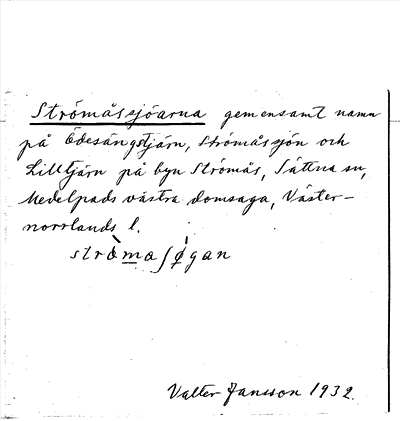 Strömåssjöarna gemensamt namn
på Ödesängstjärn, Strömåssjön och
Lilltjärn på byn Strömås, Sättna sn,
Medelpads västra domsaga, Väster-
norrlands l.
strò̀maʃø̀gan
Valter Jansson 1932.